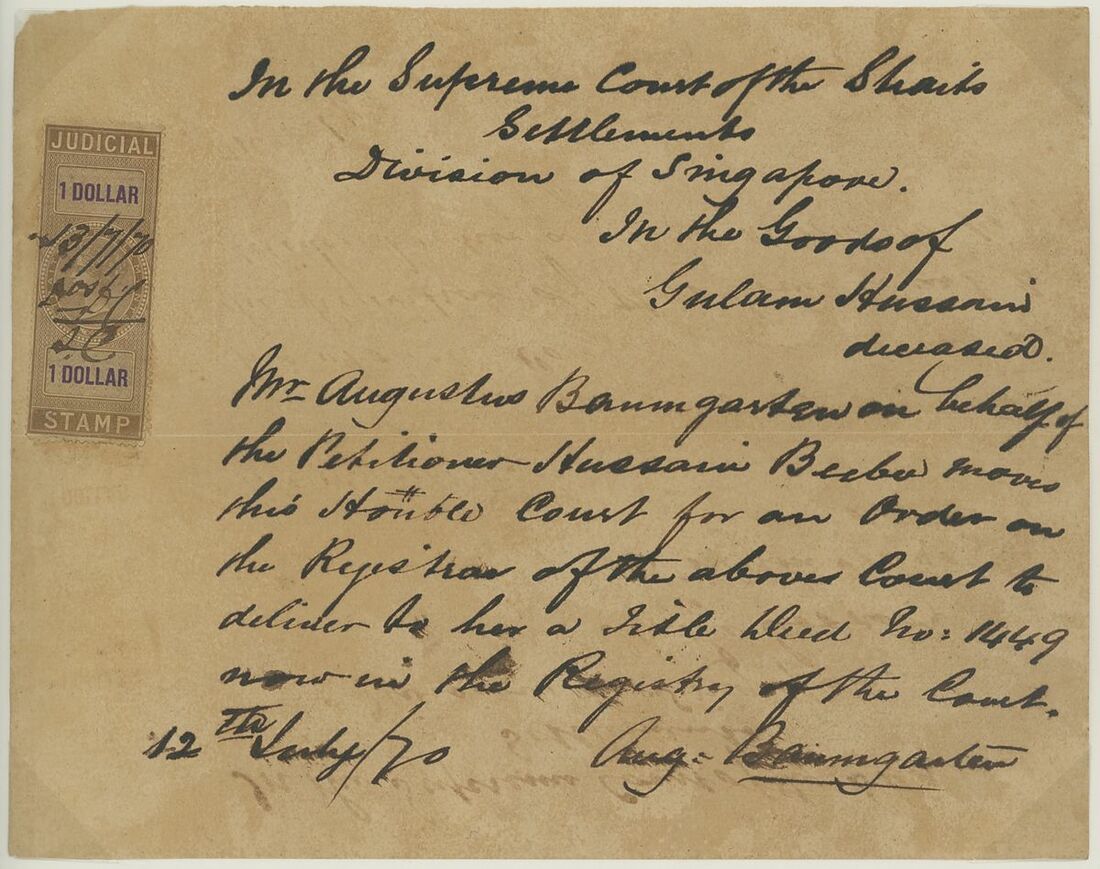 In the Supreme Court of the Straits
Settlements
Division of Singapore.
In the Goods of
Gulam Hussain
deceased.
JUDICIAL
1 DOLLAR
13/7/70
1 DOLLAR
STAMP
Mr Augustus Baumgarten on behalf of
the Petitioner Hussain Beebee moves
this Hon'ble Court for an Order on
the Registrar of the above Court to
deliver to her a Title Deed No: 1449
now in the Registry of the Court.
12th July/70 Aug: Baumgarten